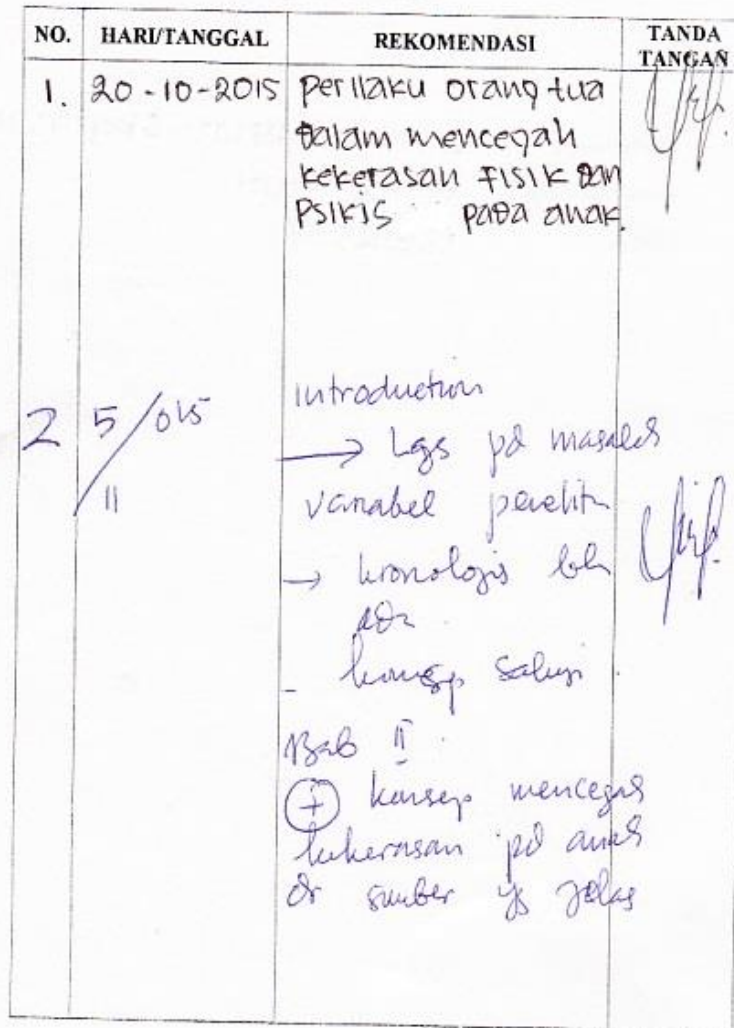 NO. HARI/TANGGAL REKOMENDASI TANDA TANGAN
1. 20-10-2015 perilaku orang tua
dalam mencegah
kekerasan fisik dan
psikis pada anak.
introduction
2 5/11 015 → lgs pd masalah
variabel penelitn
→ kronologis
ada
- konsep
Bab II
+ konsep mencegah
kekerasan pd anak
dr sumber yg jelas